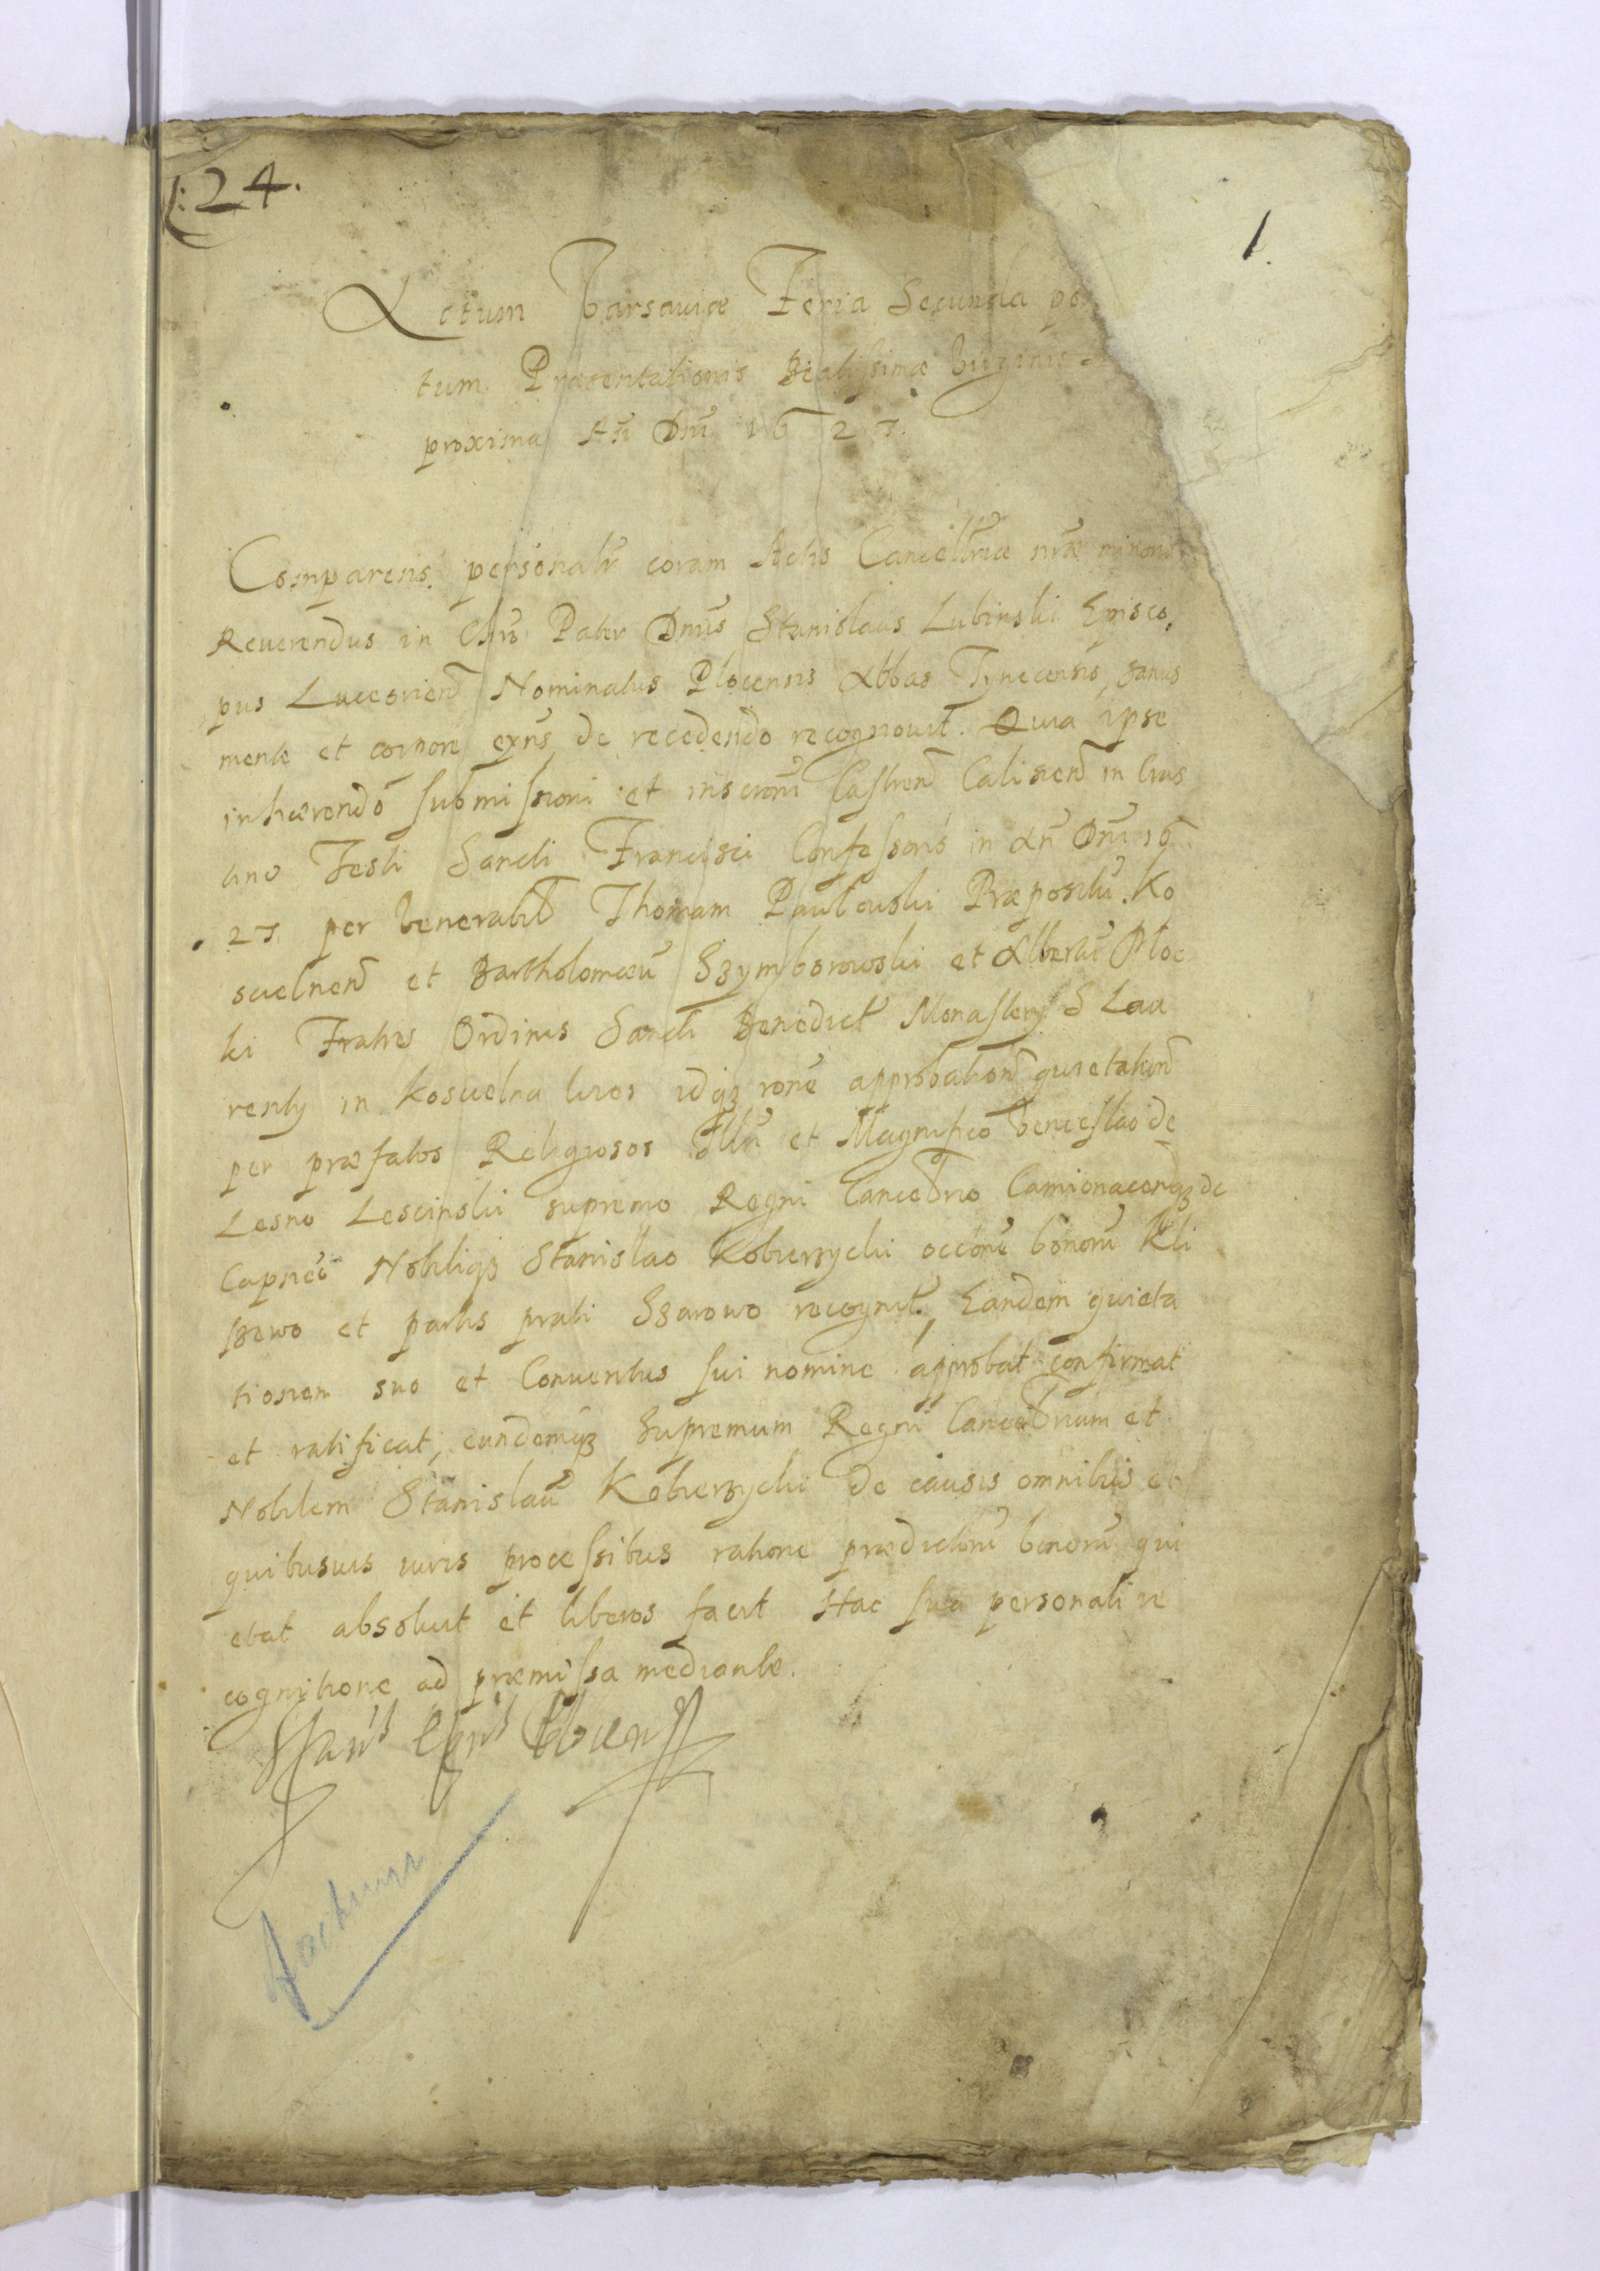 :24.
1.
Actum Varsaviæ Feria Secunda po
tum Præsentationis Beatissimæ Virginis
proxima An̄ Dn̄i 1627.
Comparens personalr̄ coram Actis Cancell̄riæ nr̄æ minoris
Reuerendus in Chr̄o Pater Dn̄us Stanislaus Lubinski Episco,
pus Luceorien̄ Nominatus Plocensis Abbas Tynecensis, sanus
mente et corpore exn̄s, de recedendo recognouit. Quia ipse
inhærendo submissioni et inscr̄oni Castren̄ Calissien̄ in Cras
tino Festi Sancti Francisci Confessoris in An̄ Dn̄i 16
27 per Venerabil̄ Thomam Paulouski Præpositū Ko
scielnen̄ et Bartholomæū Szymborowski et Albertū Ploc
ki Fratres Ordinis Sancti Benedicti Monastery S Lau
renty in Koscielna uicos idqꝫ rōne approbation̄ quietation̄
per præfatos Religiosos Illr̄i et Magnifico Venceslao de
Lesno Lescinski supremo Regni Cancellr̄io Camionacenqꝫ de
Capneo Nobiliqꝫ Stanislao Kobierzycki occōne bonorū Kli
szewo et partis prati Szarowo recognit, Eandem quieta
tionem suo et Conuentus sui nomine approbat confirmat
et ratificat, eundemqꝫ Supremum Regni Cancellr̄ium et
Nobilem Stanislaū Kobierzycki de causis omnibus et
quibusuis iuris processibus ratione prædictorū bonorū qui
etat absoluit et liberos facit Hac sua personali re
cognitione ad præmissa mediante.
Stan̄s Ep̄us